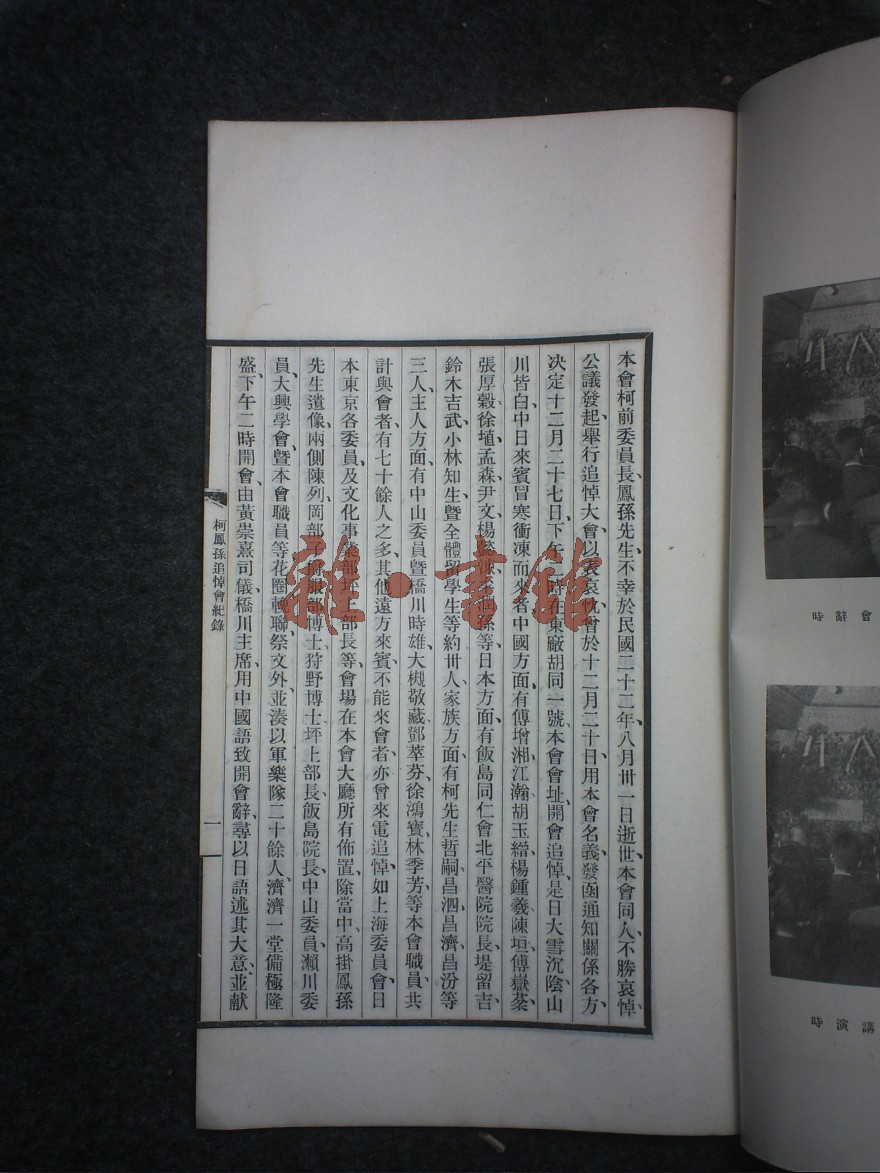 本會柯前委員長、鳳孫先生、不幸於民國二十二年、八月卅一日逝世、本會同人、不勝哀悼、
公議發起舉行追悼大會、以表哀忱、曾於十二月二十日、用本會名義、發函通知關係各方、
決定十二月二十七日、下午二時、在東廠胡同一號、本會會址、開會追悼、是日大雪沉陰、山
川皆白、中日來賓、冒寒衝凍而來者、中國方面、有傅增湘、江瀚、胡玉縉、楊鍾羲、陳垣、傅嶽棻、
張厚穀、徐埴、孟森、尹文、楊懿涑、孫等、日本方面、有飯島同仁會北平醫院院長、堤留吉、
鈴木吉武、小林知生、暨全體留學生等約卅人、家族方面、有柯先生哲嗣昌泗、昌濟、昌汾等
三人、主人方面、有中山委員、暨橋川時雄、大槻敬藏、鄧萃芬、徐鴻寶、林季芳、等本會職員、共
計與會者、有七十餘人之多、其他遠方來賓、不能來會者、亦曾來電追悼、如上海委員會、日
本東京各委員、及文化事業部坪上部長、等、會場在本會大廳、所有佈置、除當中、高掛鳳孫
先生遺像、兩側陳列、岡部子爵、服部博士、狩野博士、坪上部長、飯島院長、中山委員、瀨川委
員、大興學會、暨本會職員等花圈、輓聯、祭文外、並湊以軍樂隊二十餘人、濟濟一堂、備極隆
盛、下午二時開會、由黃崇熹司儀、橋川主席、用中國語致開會辭、尋以日語述其大意、並献
柯鳳孫追悼會紀錄
一
時辭會
時演講
雜·書館